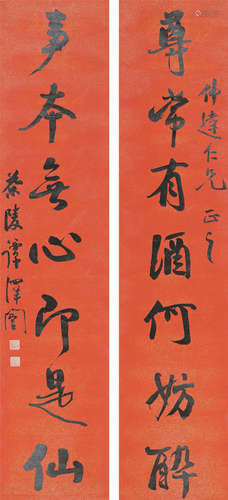 偉達仁兄正之
尊常有酒何妨醉
事本無心即是仙
茶陵譚澤闓